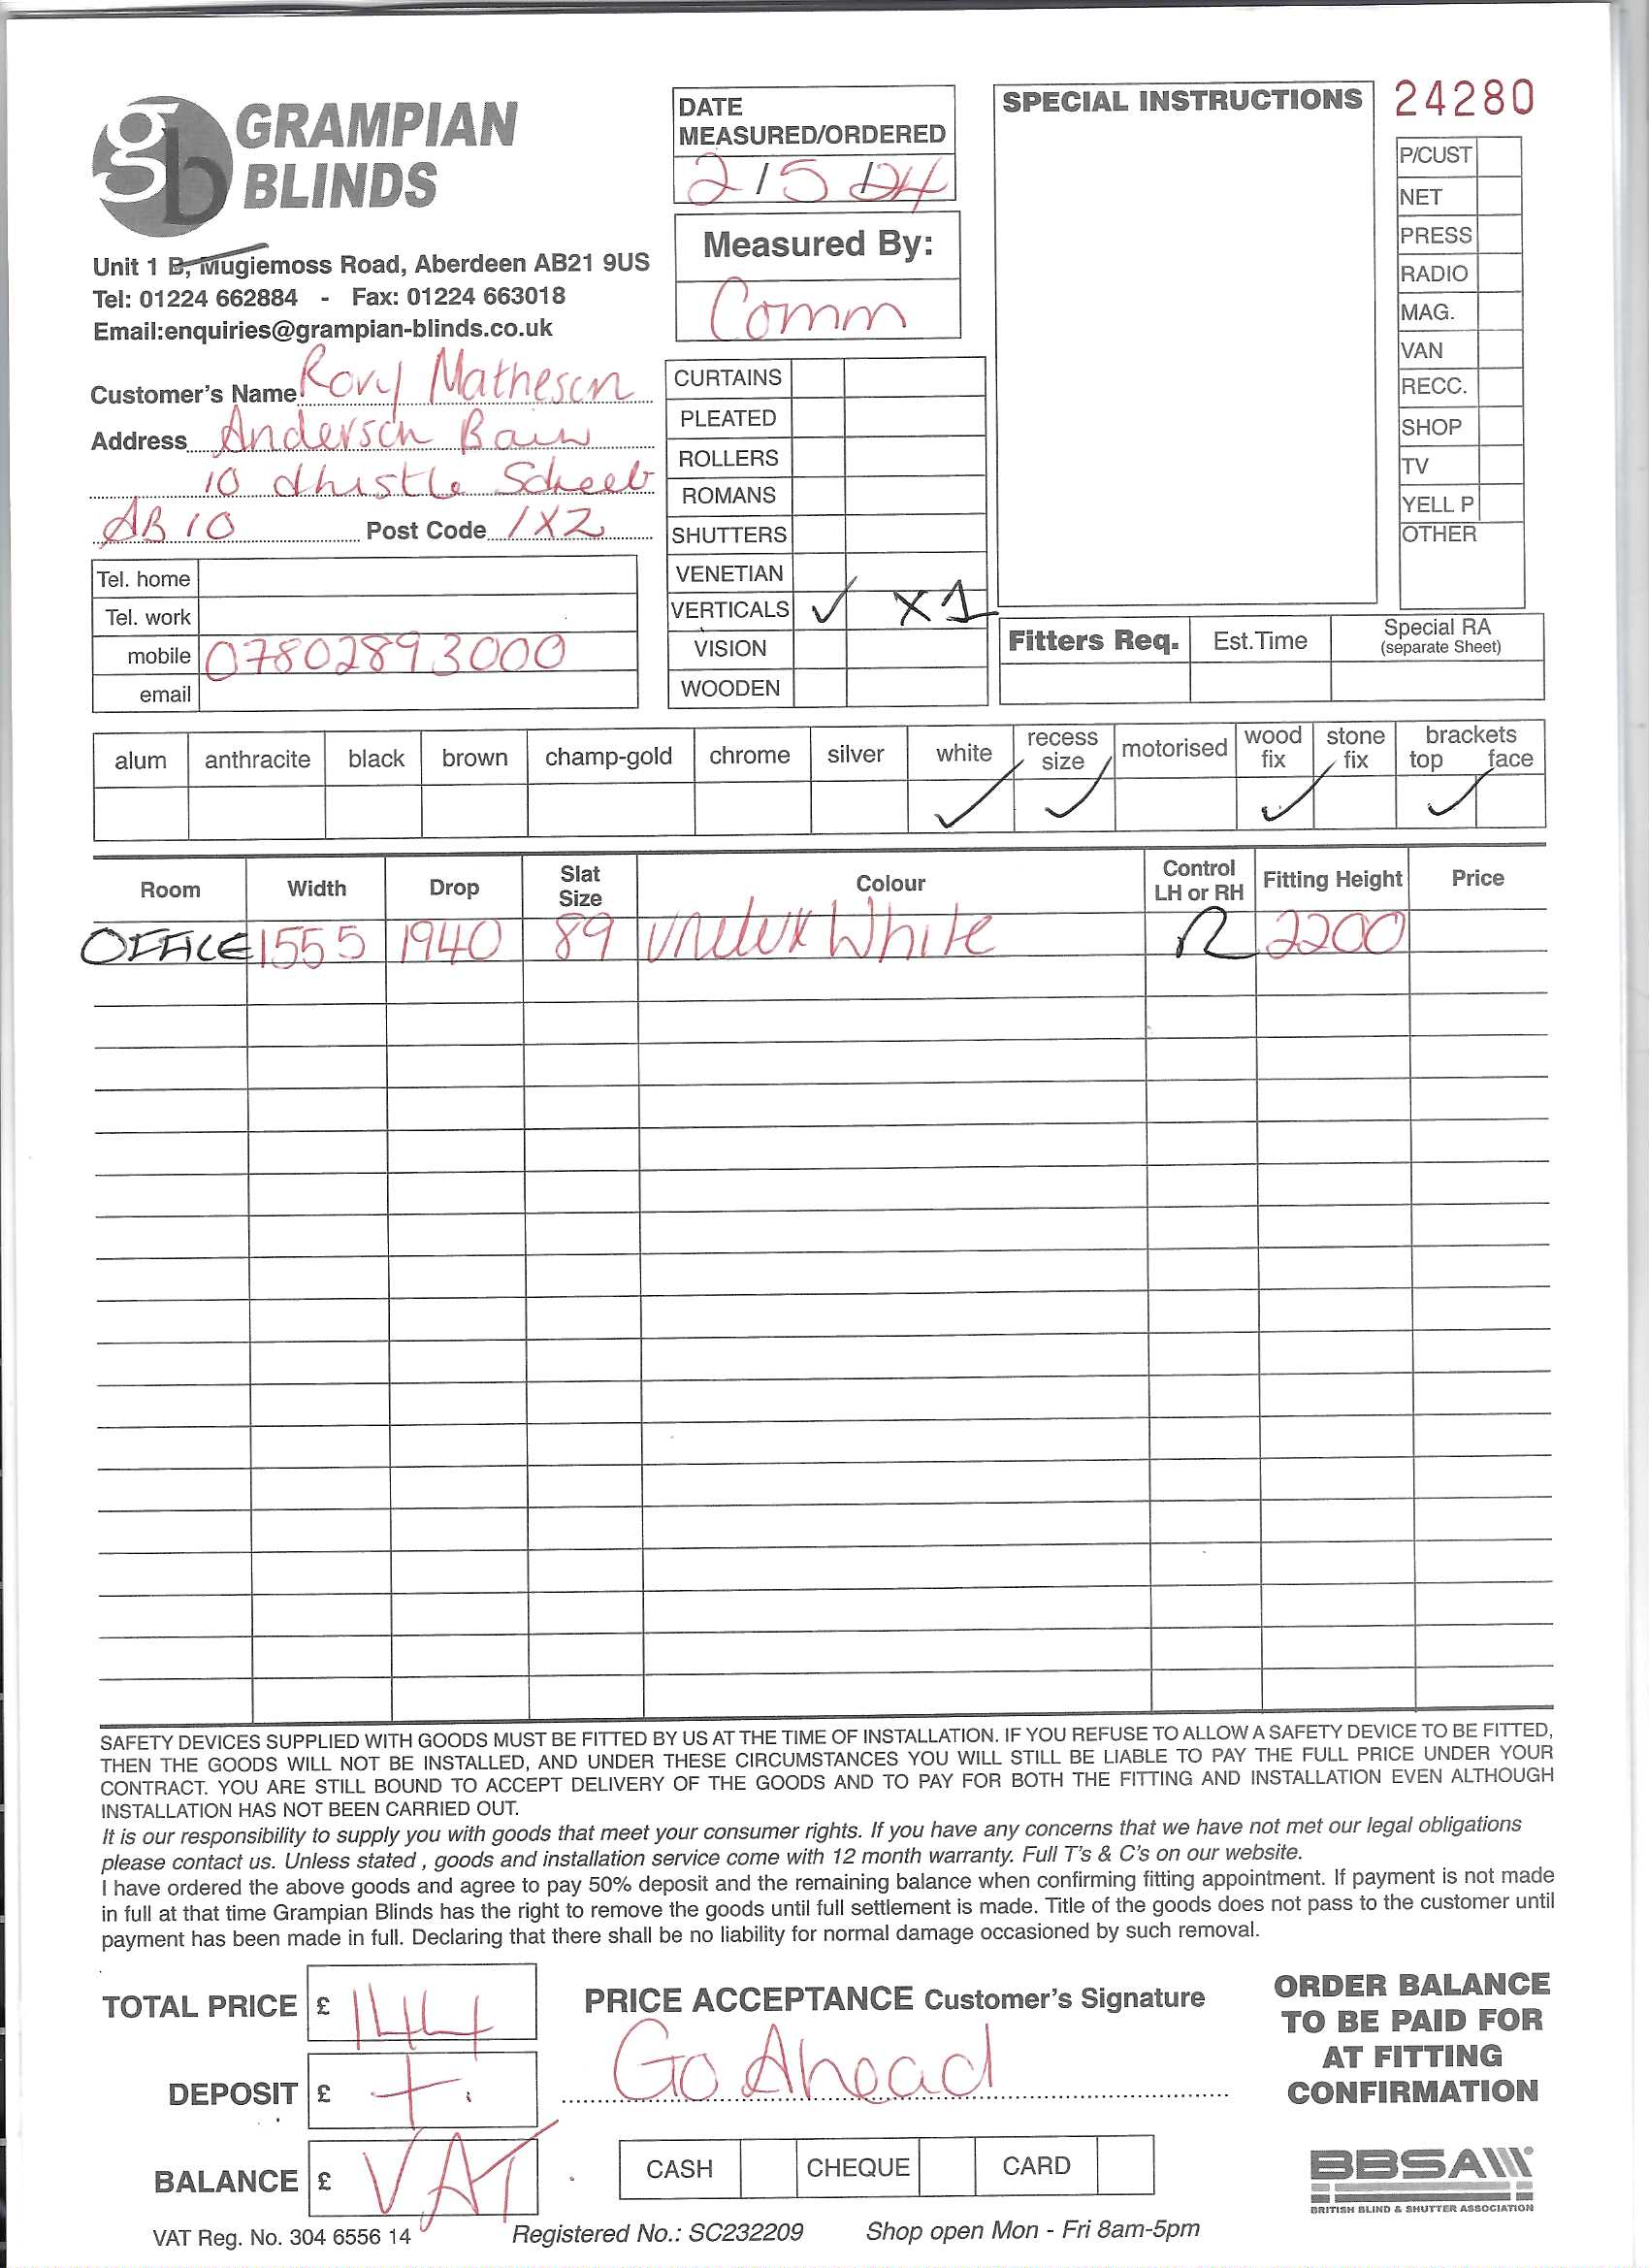 GRAMPIAN
BLINDS
Unit 1 B, Mugiemoss Road, Aberdeen AB21 9US
Tel: 01224 662884 - Fax: 01224 663018
Email:enquiries@grampian-blinds.co.uk
DATE
MEASURED/ORDERED
2/5/24
Measured By:
Comm
SPECIAL INSTRUCTIONS
24280
P/CUST
NET
PRESS
RADIO
MAG.
VAN
RECC.
SHOP
TV
YELL P
OTHER
Customer's Name Rory Matheson
Address Anderson Bain
10 Thistle Street
AB10 Post Code 1XZ
Tel. home
Tel. work
mobile 07802893000
email
CURTAINS
PLEATED
ROLLERS
ROMANS
SHUTTERS
VENETIAN
VERTICALS ✓ X1
VISION
WOODEN
Fitters Req. Est.Time Special RA
(separate Sheet)
alum anthracite black brown champ-gold chrome silver white recess size motorised wood fix stone fix brackets top face
✓ ✓ ✓ ✓
Room Width Drop Slat Size Colour Control LH or RH Fitting Height Price
OFFICE 1555 1940 89 White R 2200
SAFETY DEVICES SUPPLIED WITH GOODS MUST BE FITTED BY US AT THE TIME OF INSTALLATION. IF YOU REFUSE TO ALLOW A SAFETY DEVICE TO BE FITTED,
THEN THE GOODS WILL NOT BE INSTALLED, AND UNDER THESE CIRCUMSTANCES YOU WILL STILL BE LIABLE TO PAY THE FULL PRICE UNDER YOUR
CONTRACT. YOU ARE STILL BOUND TO ACCEPT DELIVERY OF THE GOODS AND TO PAY FOR BOTH THE FITTING AND INSTALLATION EVEN ALTHOUGH
INSTALLATION HAS NOT BEEN CARRIED OUT.
It is our responsibility to supply you with goods that meet your consumer rights. If you have any concerns that we have not met our legal obligations
please contact us. Unless stated , goods and installation service come with 12 month warranty. Full T's & C's on our website.
I have ordered the above goods and agree to pay 50% deposit and the remaining balance when confirming fitting appointment. If payment is not made
in full at that time Grampian Blinds has the right to remove the goods until full settlement is made. Title of the goods does not pass to the customer until
payment has been made in full. Declaring that there shall be no liability for normal damage occasioned by such removal.
TOTAL PRICE £ 144
DEPOSIT £ +
BALANCE £ VAT
PRICE ACCEPTANCE Customer's Signature
Go Ahead
CASH CHEQUE CARD
ORDER BALANCE
TO BE PAID FOR
AT FITTING
CONFIRMATION
BBSA
BRITISH BLIND & SHUTTER ASSOCIATION
VAT Reg. No. 304 6556 14 Registered No.: SC232209 Shop open Mon - Fri 8am-5pm